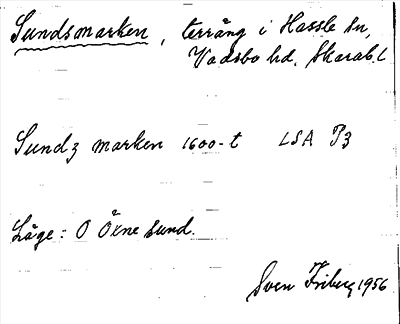 Sundsmarken, terräng i Hassle sn,
Vadsbo hd. Skarab. l
Sundz marken 1600-t LSA P3
Läge: O Öxne sund.
Sven Friberg 1956